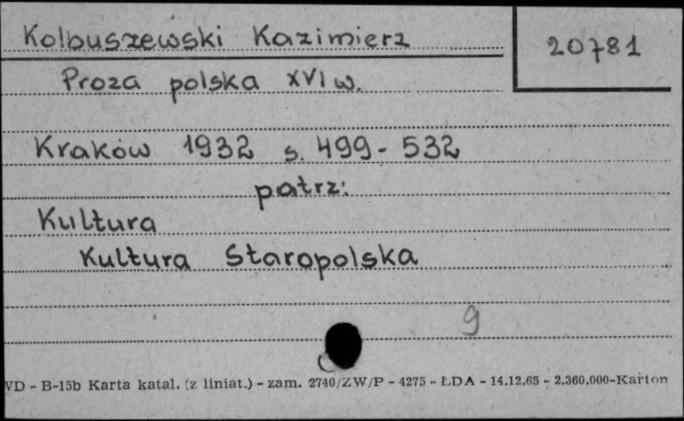 Kolbuszewski Kazimierz
20781
Proza polska XVI w.
Kraków 1932 s. 499-532
patrz:
Kultura
Kultura Staropolska
9
VD - B-15b Karta katal. (z liniat.) - zam. 2740/ZW/P - 4275 - ŁDA - 14.12.65 - 2.360.000-Karton